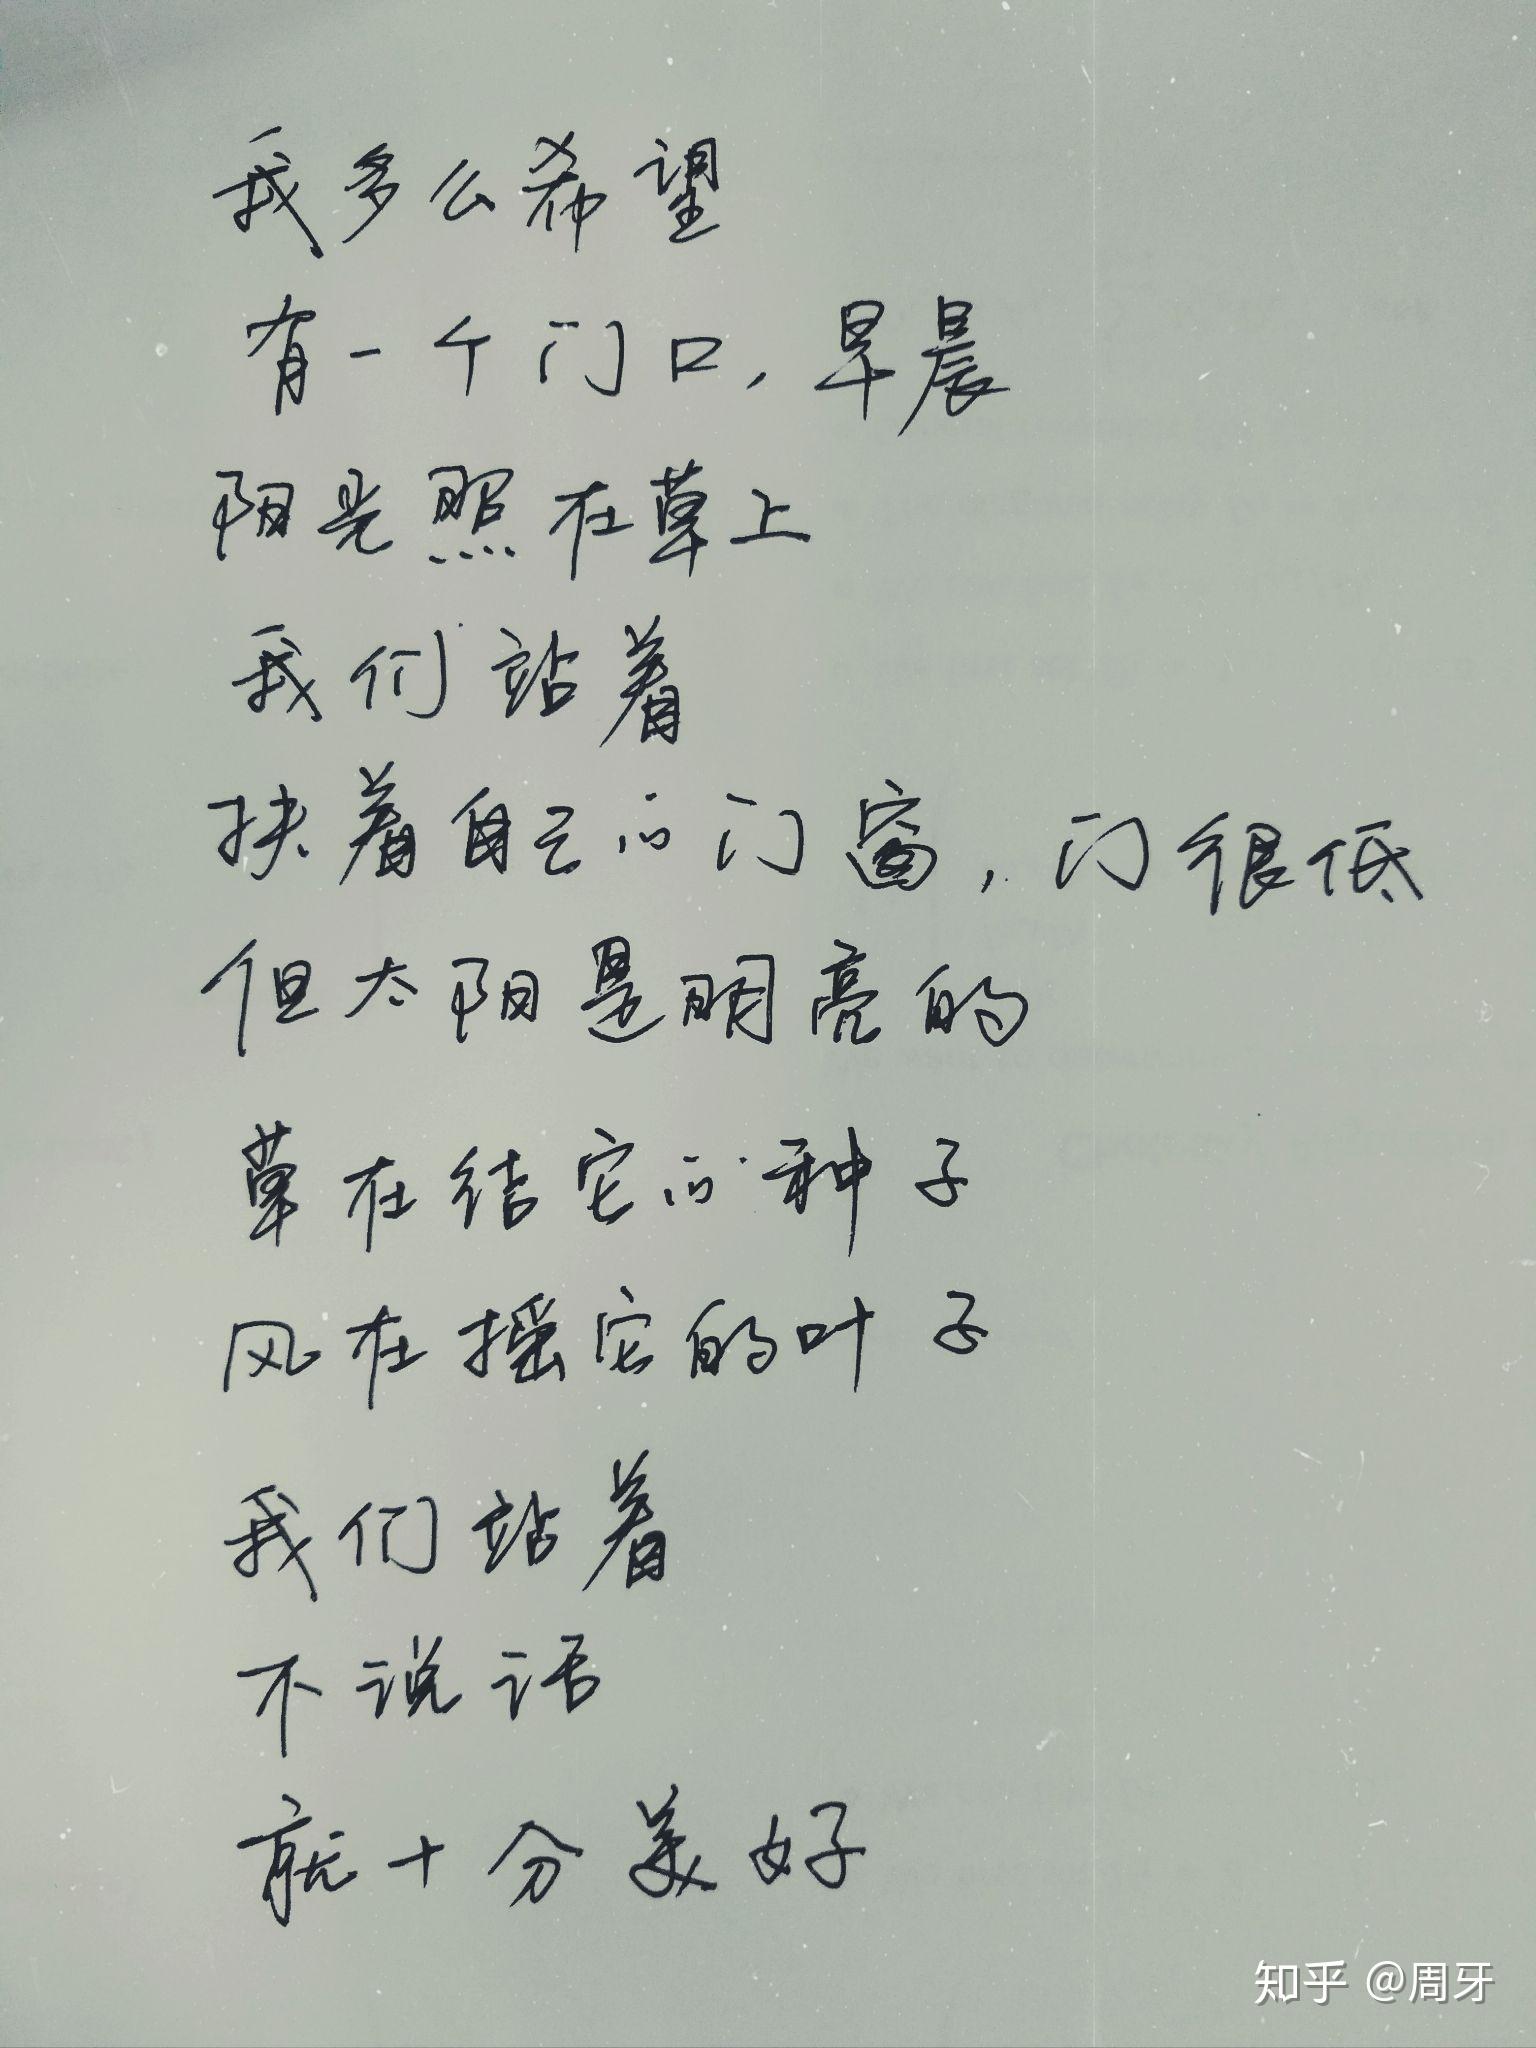 我多么希望
有一个门口，早晨
阳光照在草上
我们站着
扶着自己的门窗，门很低
但太阳是明亮的
草在结它的种子
风在摇它的叶子
我们站着
不说话
就十分美好
知乎 @周牙